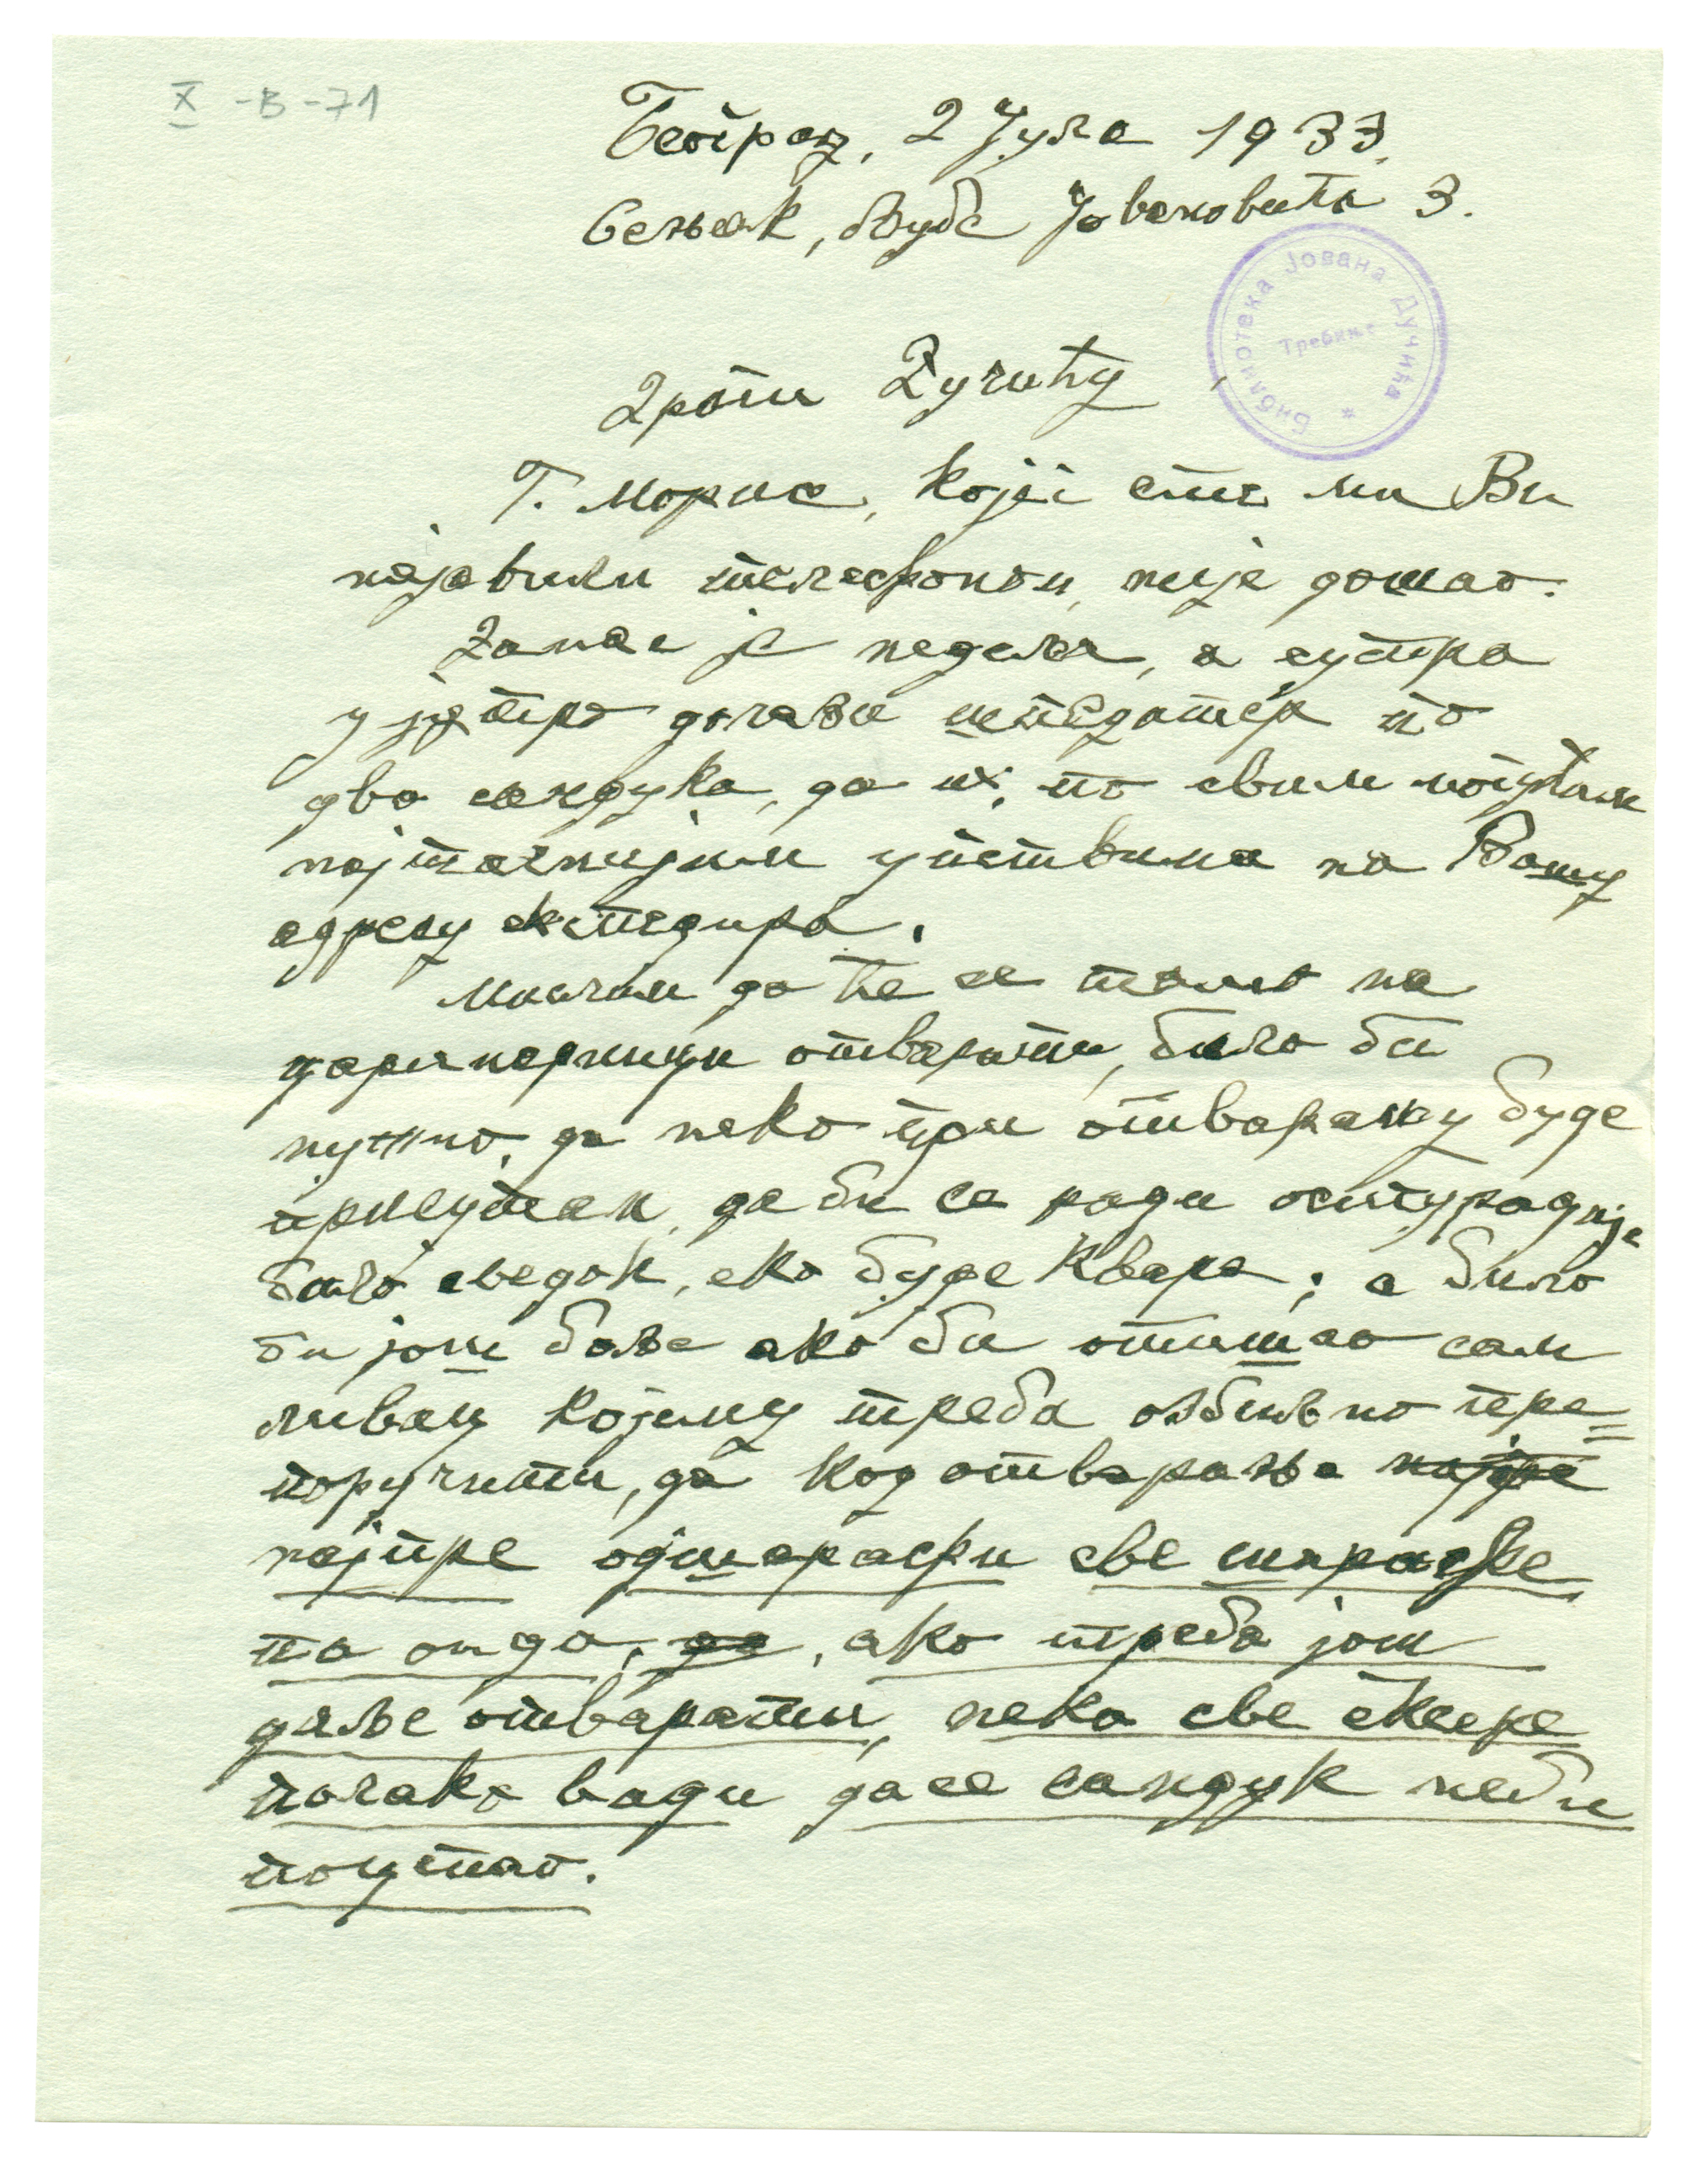 X -В -71
Београд, 2 Јула 1933.
Сењак, Љубе Јовановића 3.
Библиотека Јована Дучића
Требиње
Драги Дучићу,
Г. Морис, који сте ми Ви
најавили телефоном, није дошао.
Данас је недеља, а сутра
у јутро долази шпедитер по
два сандука, да их, по свим могућим
најтачнијим упутвима на Вашу
адресу експедира.
Мислим да ће се тамо на
царинарници отварати, било би
нужно, да неко при отварању буде
присутан, да би се ради осигурације
било сведок, ако буде квара; а било
би још боље ако би отишао сам
ливац којему треба озбиљно пре=
поручити, да код отварања најпре
најпре одшарафи све шарафе
па онда, да, ако треба још
даље отварати, нека све ексере
полако вади да се сандук неби
поцепао.